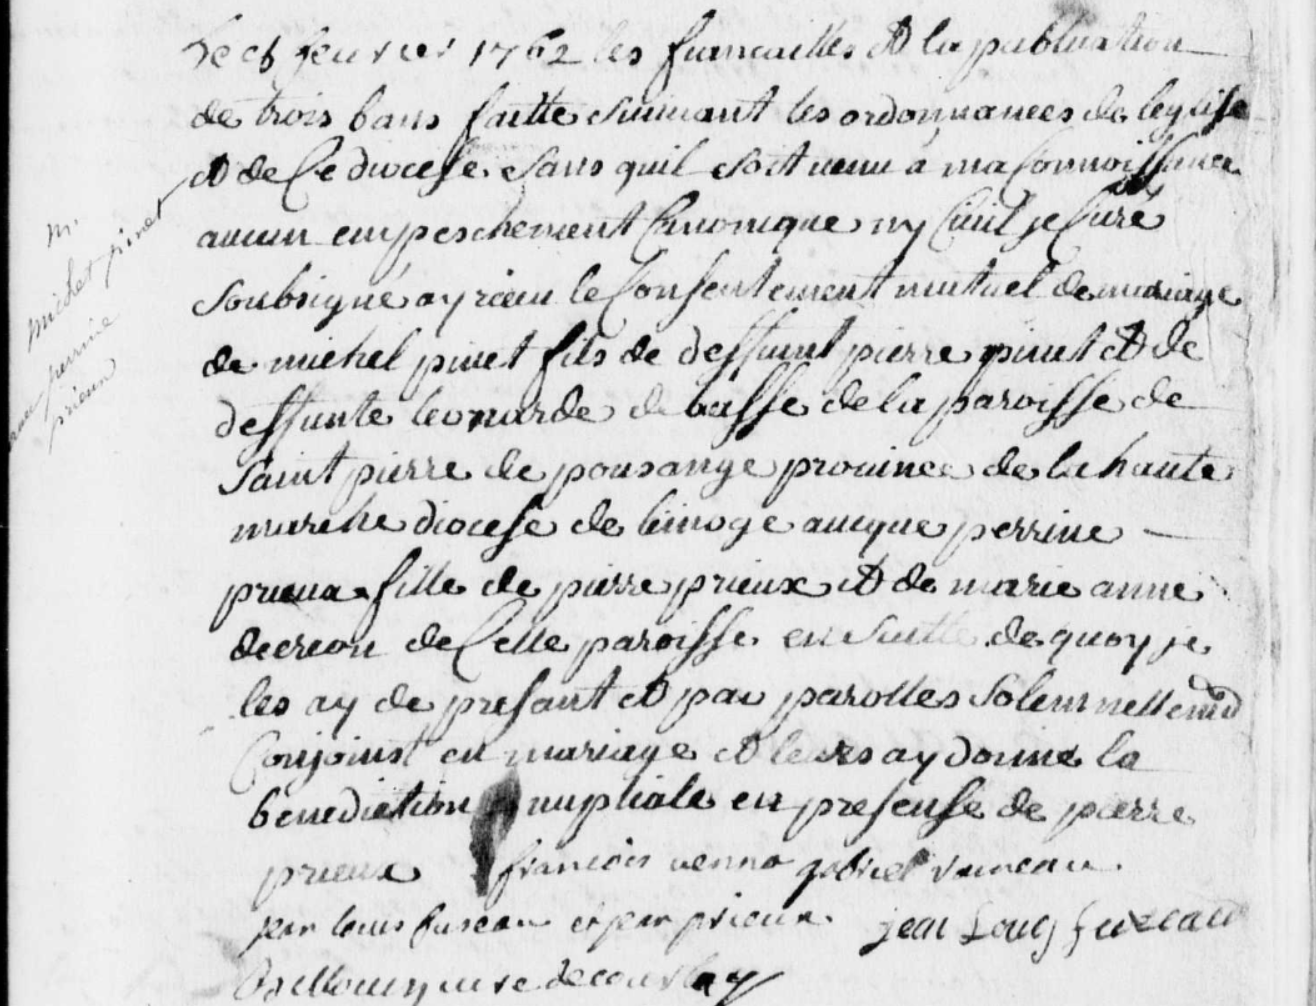 fevrier 1762 les fiancailles et la publication
de trois bans faitte suivant les ordonnances de leglise
et de Ce diocese sans quil soit venu a ma Connoissance
aucun empeschement Canonique ny Civil je Curé
soubsigné ay receu le Consentement mutuel de mariage
de michel pinet fils de deffunt pierre pinet et de
deffunte leonarde de la paroisse de
Saint pierre de pousange province de la haute
marche diocese de limoge avecque perrine
prieux fille de pierre prieux et de marie anne
de Cette paroisse en suitte de quoy je
les ay de presant et par parolles Solennellement
Conjoinst en mariage et leurs ay donne la
benediction nuptiale en presense de pierre
prieux francois gabriel
jean louis fuseau et jean prieux jean Louis fuzeau
curé de courlay
m.
michel pinet
perrine
prieux